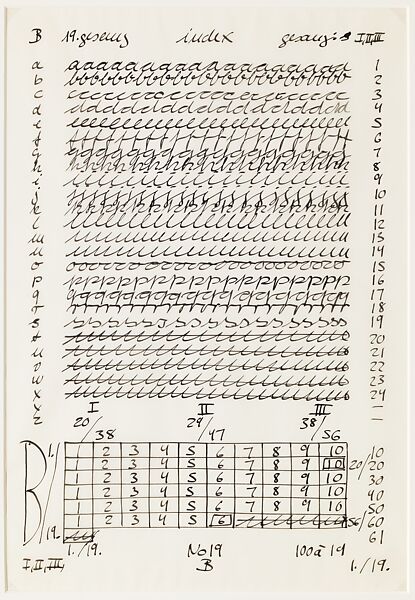 B 19.gesang index gesang: I,II,III
a 1
b 2
c 3
d 4
e 5
f 6
g 7
h 8
i 9
j 10
k 11
l 12
m 13
n 14
o 15
p 16
q 17
r 18
s 19
t 20
u 21
v 22
w 23
x 24
y —
z —
I II III
20/38 29/47 38/56
B 1./19.
1 2 3 4 5 6 7 8 9 10 /10
1 2 3 4 5 6 7 8 9 10 20/20
1 2 3 4 5 6 7 8 9 10 30
1 2 3 4 5 6 7 8 9 10 40
1 2 3 4 5 6 7 8 9 10 50
1 2 3 4 5 6 56/60
61
I,II,III, 1./19. No19 100à 19 1./19.
B